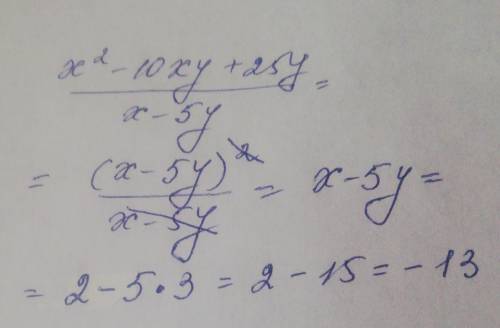 x² - 10xy + 25y
x - 5y =
= (x - 5y)² = x - 5y =
x - 5y
= 2 - 5·3 = 2 - 15 = -13